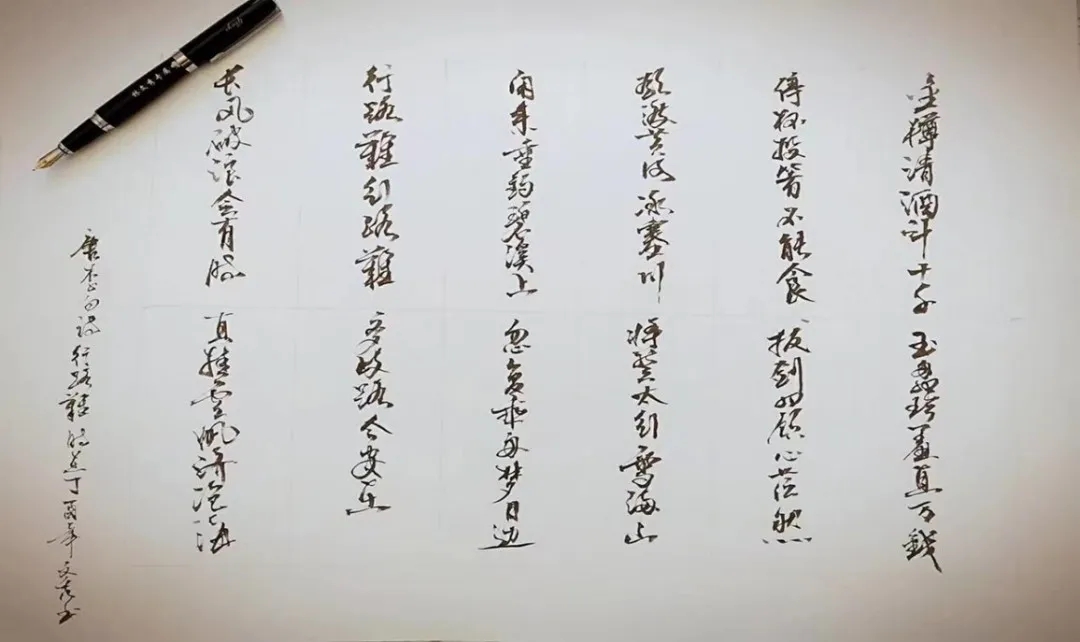 金樽清酒计十千 玉盘珍羞直万钱
停杯投箸不能食 拔剑四顾心茫然
欲渡黄河冰塞川 将登太行雪满山
闲来垂钓碧溪上 忽复乘舟梦日边
行路難行路難 多歧路今安在
长风破浪会有时 直挂云帆济沧海
唐李白诗行路難 时在丁酉年 文 书